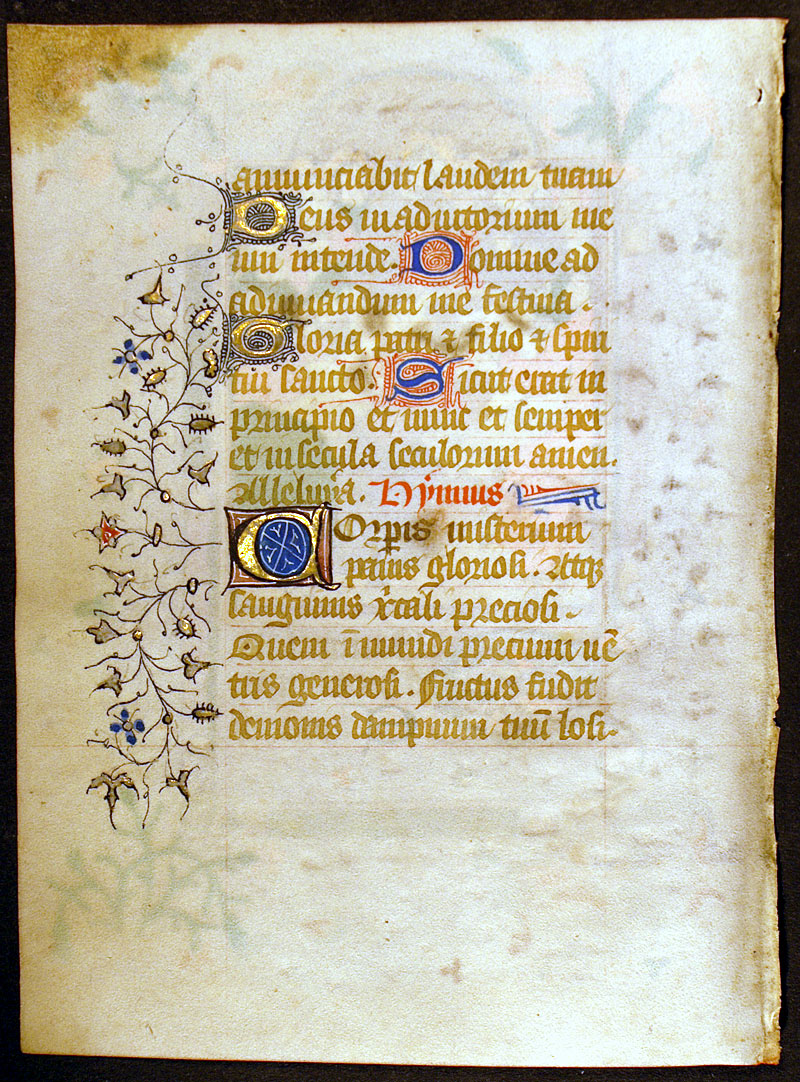 annunciabit laudem tuam
Deus in adiutorium me
um intende. Domine ad
adiuuandum me festina.
Gloria patri & filio & spiri
tui sancto. Sicut erat in
principio et nunc et semper
et in secula seculorum amen.
Alleluya. Hÿmnus
Corp̲is misterium
panis gloriosi. Atqꝫ
sanguinis xp̄tali preciosi.
Quem ī mundi precium uē
tris generosi. Fructus fudit
demonis dampnum tuū losi.